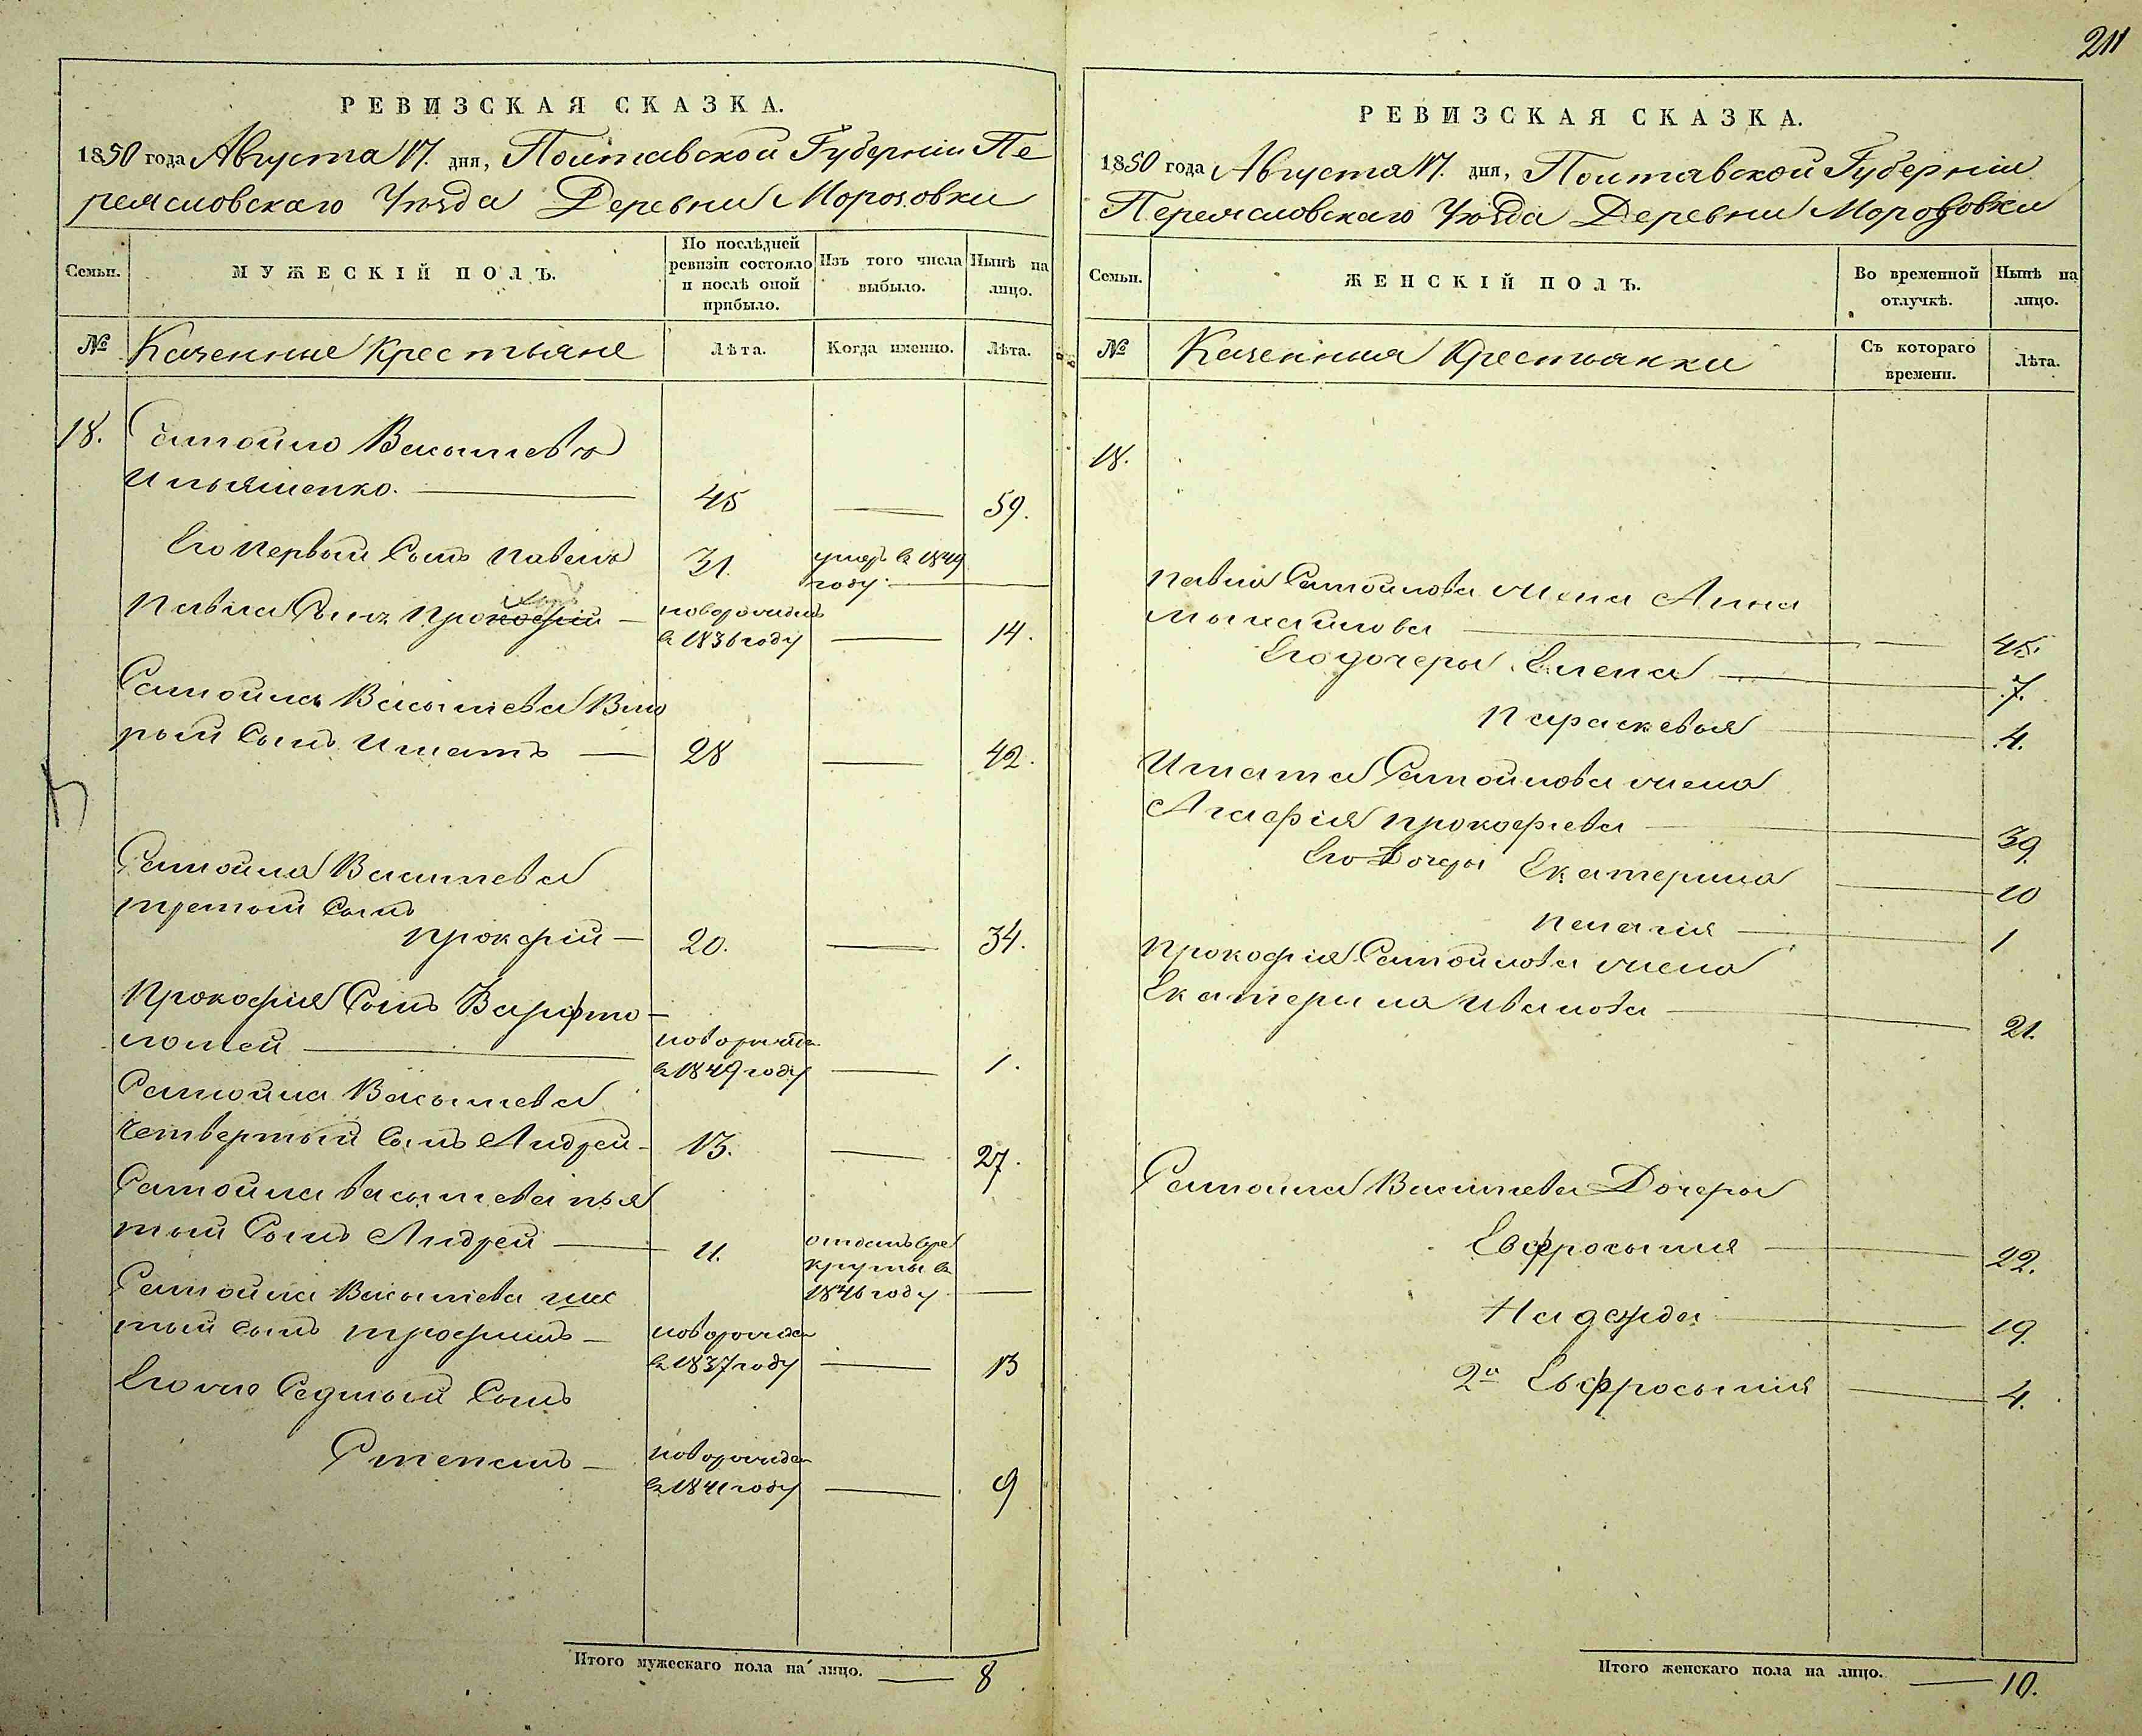 211
РЕВИЗСКАЯ СКАЗКА.
1850 года Августа 17. дня, Полтавской Губерніи Пе
реяславскаго Уѣзда Деревни Морозовки
Семьи.
МУЖЕСКІЙ ПОЛЪ.
По послѣдней ревизіи состояло и послѣ оной прибыло.
Изъ того числа выбыло.
Нынѣ на лицо.
№
Казенные Крестьяне
Лѣта.
Когда именно.
Лѣта.
18. Самойло Васильевъ
Ильяшенко. 45 59.
Его первый Сынъ Павелъ 31. умеръ въ 1849
году.
Павла Сынъ Прокофій новорожденъ
въ 1836 году 14.
Самойла Васильева Вто
рый Сынъ Игнатъ 28 42.
Самойла Васильева
третій Сынъ
Прокофій 20. 34.
Прокофія Сынъ Варфто
ломей новорожден
въ 1849 году 1.
Самойла Васильева
четвертый Сынъ Андрей 13. 27.
Самойла Васильева пья
тый Сынъ Андрей 11. отданъ в ре
круты в
1846 году
Самойла Васильева шес
тый Сынъ Трофимъ новорожден
въ 1837 году 13
Его же Седмой Сынъ
Степанъ новорожден
въ 1841 году 9
Итого мужескаго пола на лицо. 8
РЕВИЗСКАЯ СКАЗКА.
1850 года Августа 17. дня, Полтавской Губерніи
Переяславскаго Уѣзда Деревни Морозовки
Семьи.
ЖЕНСКІЙ ПОЛЪ.
Во временной отлучкѣ.
Нынѣ на лицо.
№
Казенныя Крестьянки
Съ котораго времени.
Лѣта.
18.
Павла Самойлова жена Анна
Михайлова 45.
Его дочеры Елена 7.
Параскевья 4.
Игната Самойлова жена
Агафія Прокофіева 39.
Его Дочеры Екатерина 10
Пелагія 1
Прокофія Самойлова жена
Екатерина Иванова 21.
Самойла Васильева Дочеры
Евфросынія 22.
Надежда 19.
2я Евфросынія 4.
Итого женскаго пола на лицо. 10.